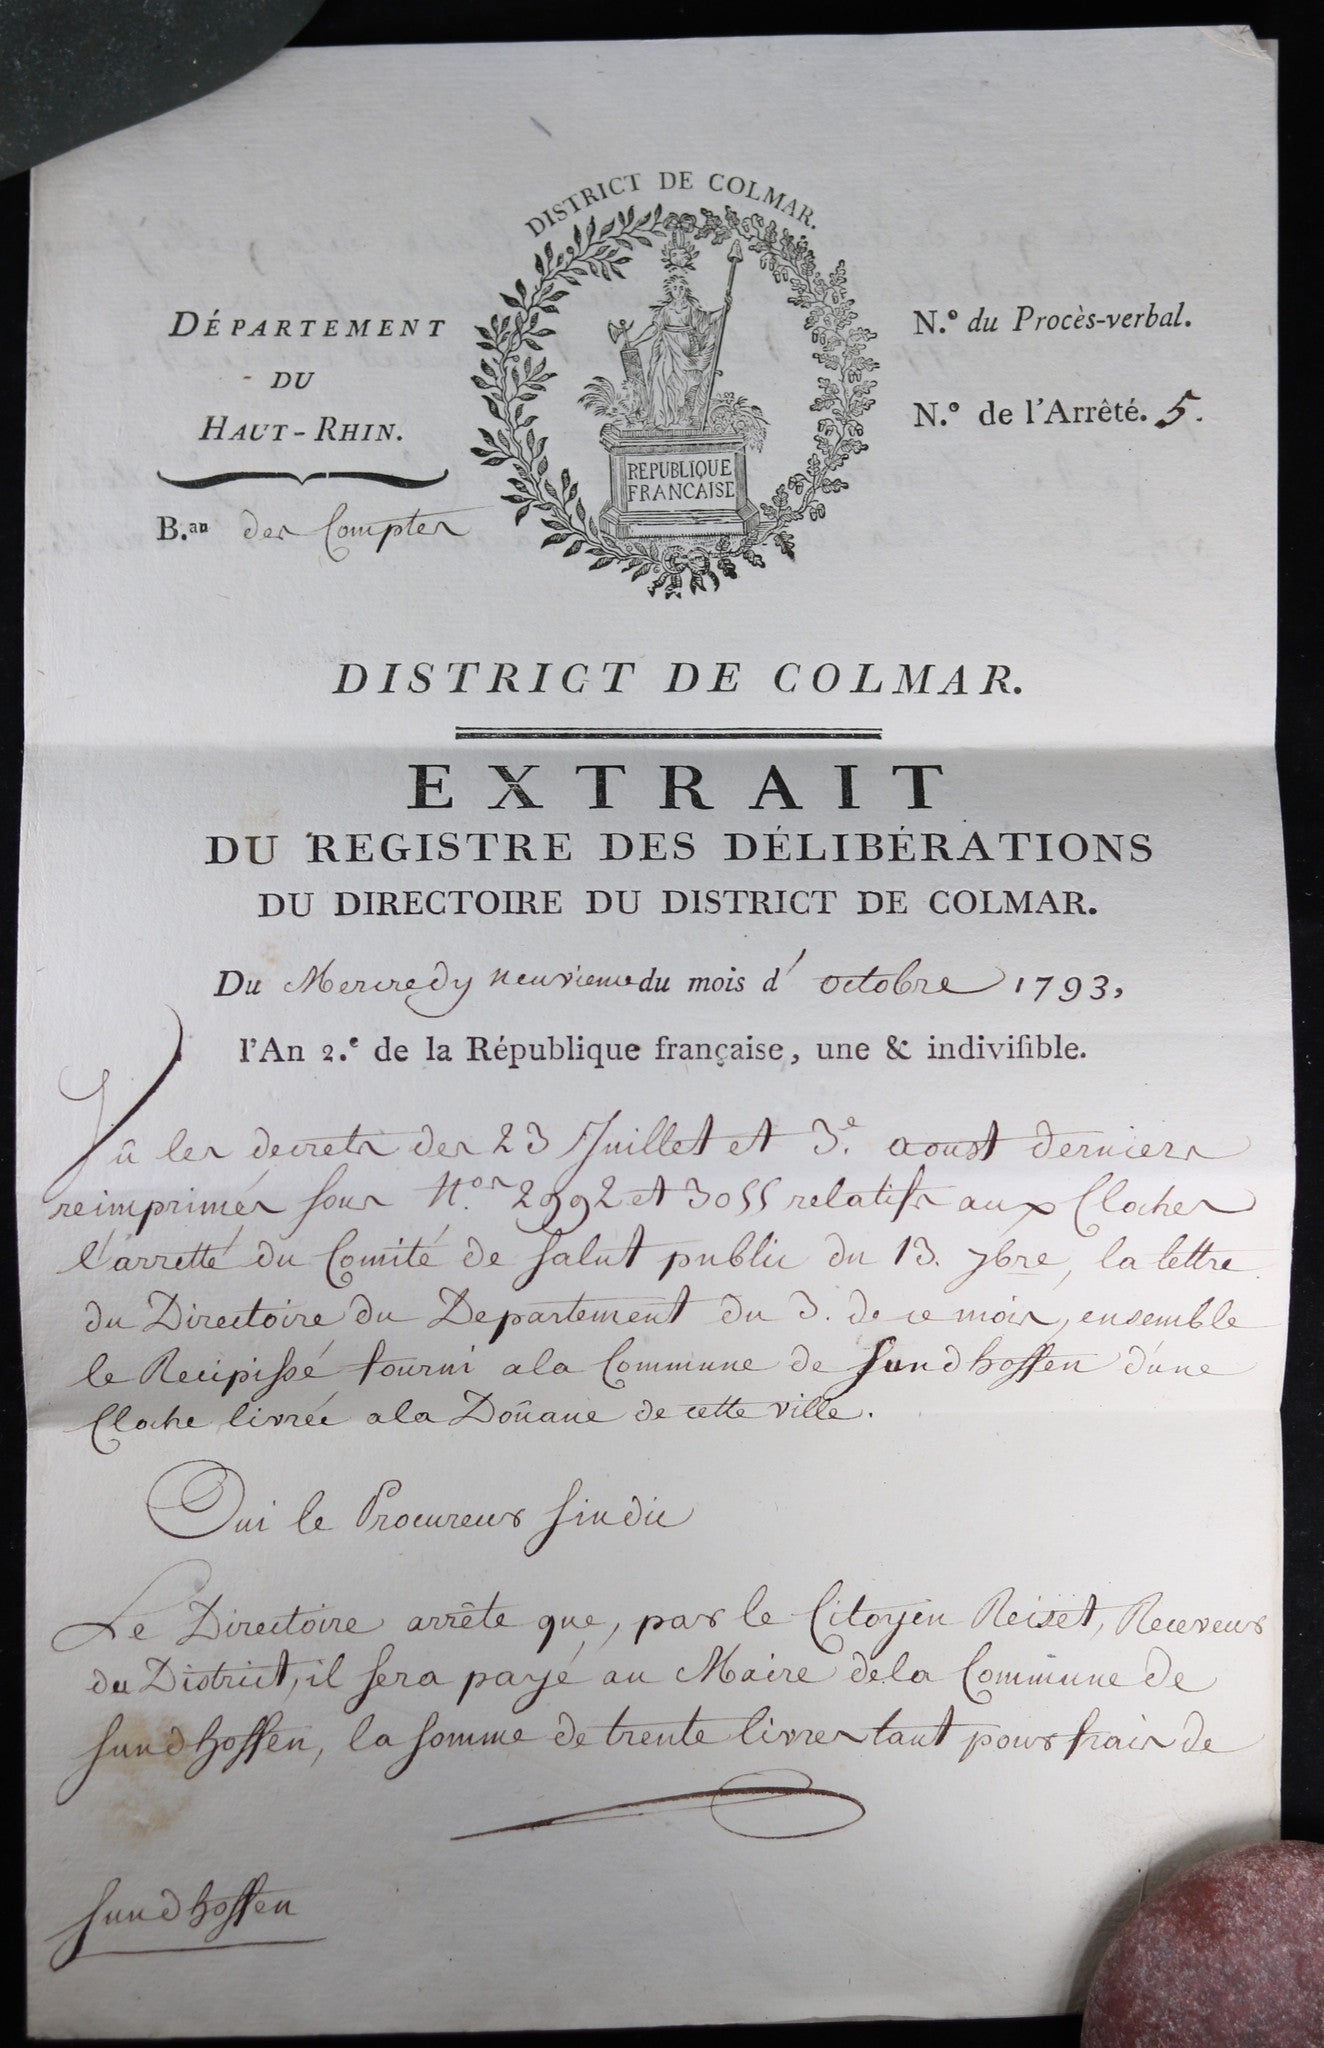 DISTRICT DE COLMAR.
DÉPARTEMENT
DU
HAUT-RHIN.
B.au des Comptes
REPUBLIQUE
FRANCAISE
N.º du Procès-verbal.
N.º de l'Arrêté. 5.
DISTRICT DE COLMAR.
EXTRAIT
DU REGISTRE DES DÉLIBÉRATIONS
DU DIRECTOIRE DU DISTRICT DE COLMAR.
Du Mercredy neuvieme du mois d' octobre 1793,
l'An 2.e de la République française, une & indiviſible.
Vû les decrets des 23 Juillet et 3.e aoust derniers
reimprimés sous N.os 2992 et 3055 relatifs aux Cloches
l'arretté du Comité de Salut public du 13. 7bre, la lettre
du Directoire du Departement du 3. de ce mois, ensemble
le Recipissé fourni a la Commune de Sundhoffen d'une
Cloche livrée a la Doûane de cette ville.
Oui le Procureur Sindic
Le Directoire arrête que, par le Citoyen Reiset, Receveur
du District, il sera payé au Maire de la Commune de
Sundhoffen, la somme de trente livres tant pour frais de
Sundhoffen